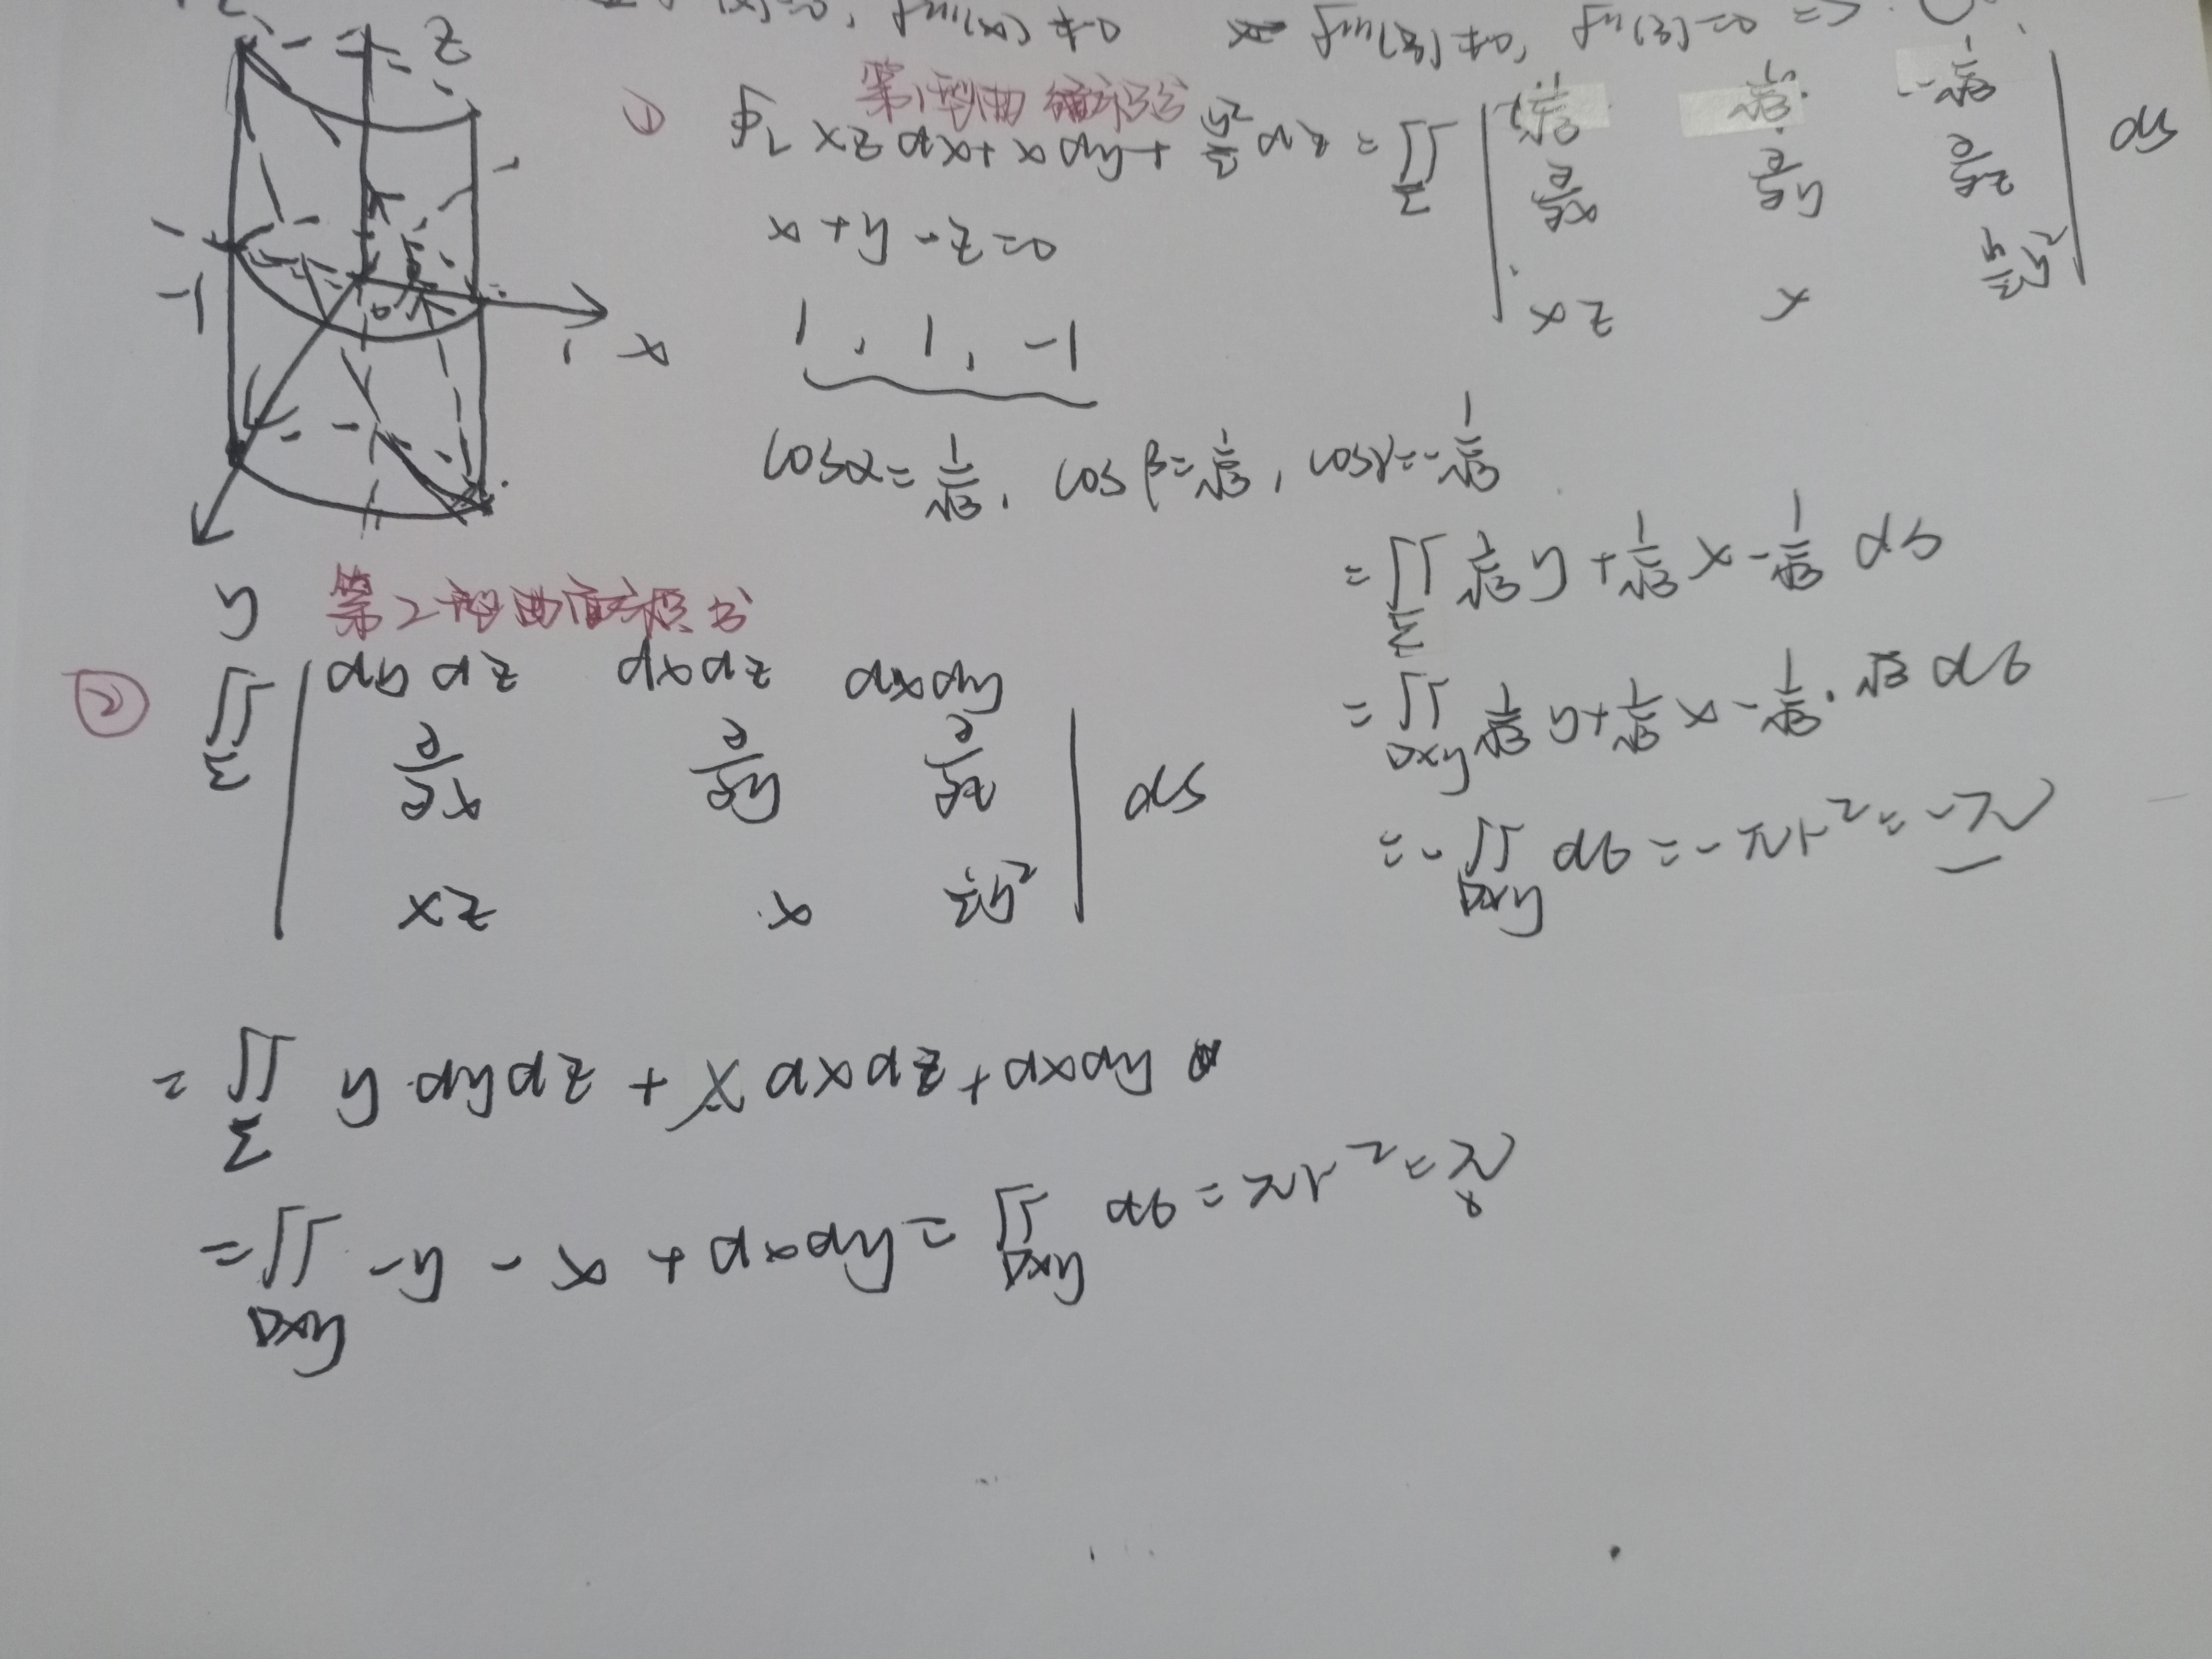 f'''(x) ≠ 0 f'''(3) ≠ 0, f''(3) = 0 =>
z
① 第1型曲面积分
∮_L xz dx + x dy + y²/2 dz = ∬_Σ | 1/√3 1/√3 -1/√3 | ds
| ∂/∂x ∂/∂y ∂/∂z |
| xz x ½y² |
x + y - z = 0
-1
0 1 x
1, 1, -1
cosα = 1/√3, cosβ = 1/√3, cosγ = -1/√3
= ∬_Σ 1/√3 y + 1/√3 x - 1/√3 ds
= ∬_Dxy 1/√3 y + 1/√3 x - 1/√3 · √3 dσ
= - ∬_Dxy dσ = -πr² = -π
y
第2型曲面积分
② ∬_Σ | dydz dxdz dxdy | ds
| ∂/∂x ∂/∂y ∂/∂z |
| xz x ½y² |
= ∬_Σ y dydz + x dxdz + dxdy
= ∬_Dxy -y - x + dxdy = ∬_Dxy dσ = πr² = π